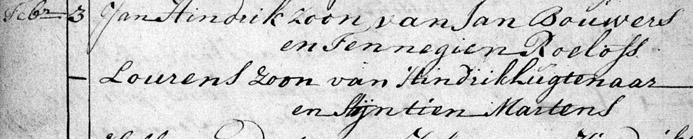 Febr 3 Jan Hindrik zoon van Jan Bouwers
en Fennegien Roelofs
- Lourens zoon van Hindrik Lugtenaar
en Stijntien Martens